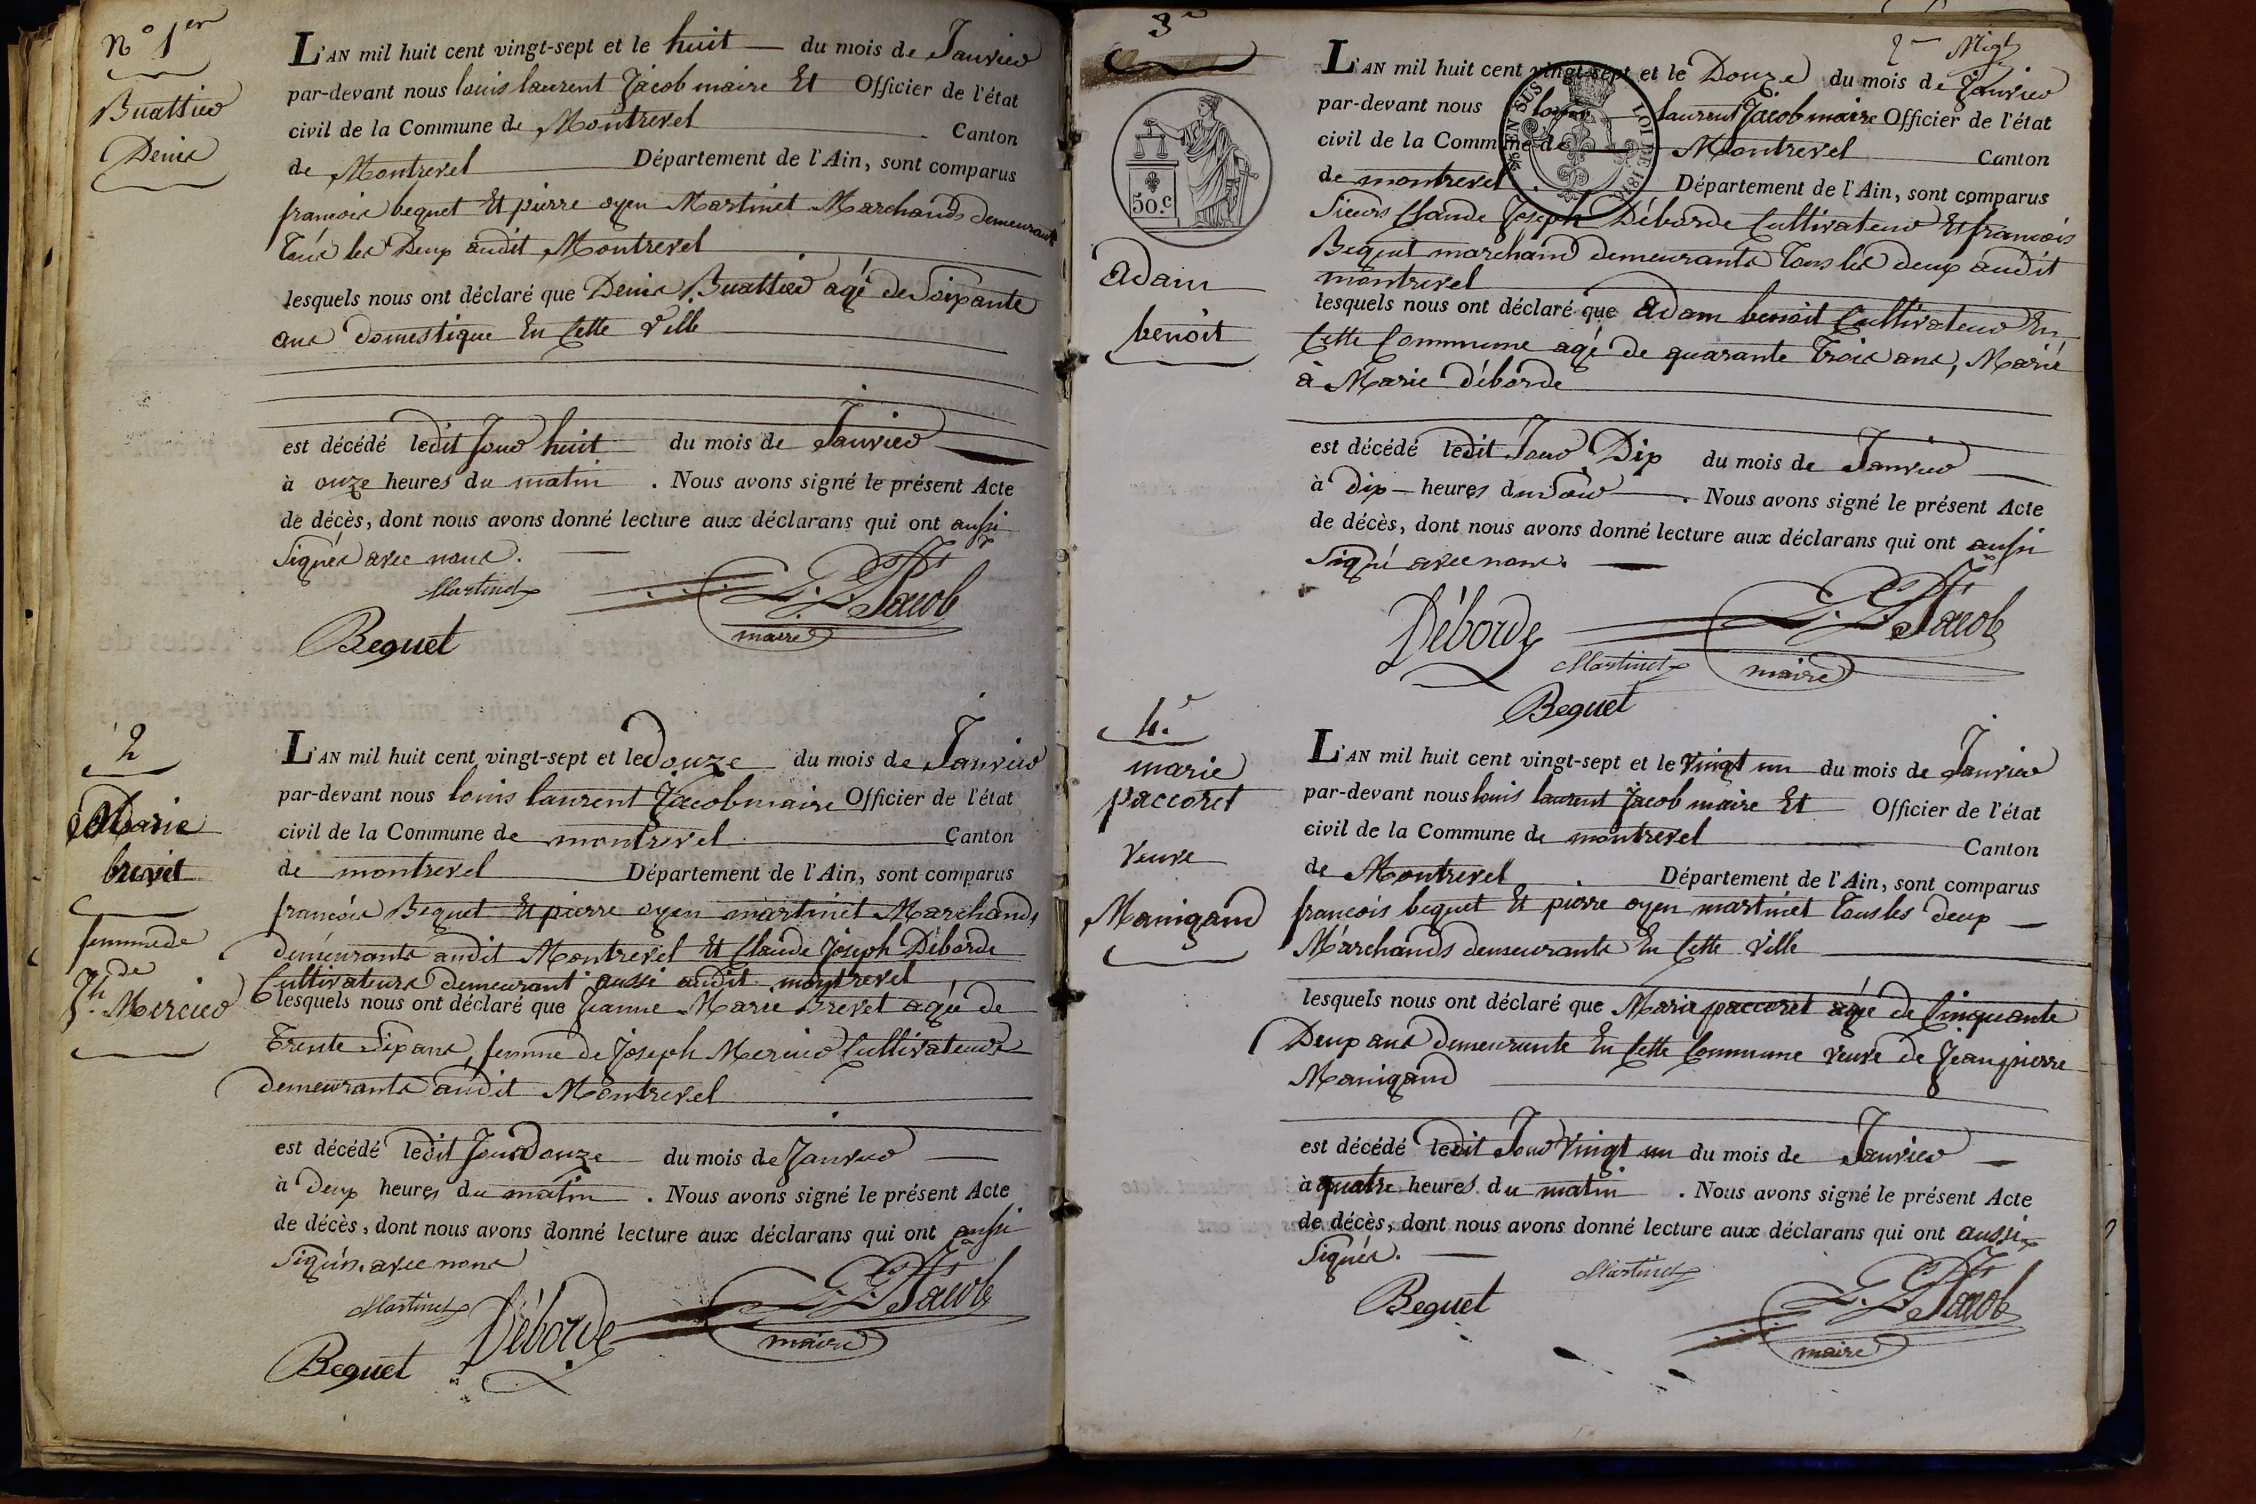 N° 1er
Buattier
Denis
L'AN mil huit cent vingt-sept et le huit du mois de Janvier
par-devant nous louis laurent Jacob maire Et Officier de l'état
civil de la Commune de Montrevel Canton
de Montrevel Département de l'Ain, sont comparus
francois bequet Et pierre oyen Martinet Marchands demeurant
tous les Deux audit Montrevel
lesquels nous ont déclaré que Denis Buattier agé de Soixante
ans domestique En Cette ville
est décédé ledit Jour huit du mois de Janvier
à onze heures du matin . Nous avons signé le présent Acte
de décès, dont nous avons donné lecture aux déclarans qui ont aussi
Signés avec nous.
Martinet
L. Lt Jacob
maire
Bequet
2
Marie
brevet
femme de
Jh Mercier
L'AN mil huit cent vingt-sept et le douze du mois de Janvier
par-devant nous louis laurent Jacob maire Officier de l'état
civil de la Commune de montrevel Canton
de montrevel Département de l'Ain, sont comparus
francois Bequet Et pierre oyen martinet Marchands
demeurants audit Montrevel Et Claude Joseph Déborde
Cultivateurs demeurant aussi audit montrevel
lesquels nous ont déclaré que Jeanne Marie Brevet agée de
Trente Six ans, femme de Joseph Mercier Cultivateurs
demeurants audit Montrevel
est décédé ledit Jour Douze du mois de Janvier
à Deux heures du matin . Nous avons signé le présent Acte
de décès, dont nous avons donné lecture aux déclarans qui ont aussi
Signés avec nous
Martinet
Déborde
L. Lt Jacob
maire
Bequet
3e
50.c
adam
benoit
L'AN mil huit cent vingt-sept et le Douze du mois de Janvier
par-devant nous louis laurent Jacob maire Officier de l'état
civil de la Commune de Montrevel Canton
de montrevel Département de l'Ain, sont comparus
LOI DE 1816
Sieurs Claude Joseph Déborde Cultivateur Et francois
Bequet marchand demeurants Tous les deux audit
montrevel
lesquels nous ont déclaré que adam benoit Cultivateur En
Cette Commune agé de quarante Trois ans, Marié
à Marie Déborde
est décédé ledit Jour Dix du mois de Janvier
à dix heures du Soir . Nous avons signé le présent Acte
de décès, dont nous avons donné lecture aux déclarans qui ont aussi
Signé avec nous.
Déborde
L. Lt Jacob
Martinet
maire
Bequet
4e
marie
paccoret
veuve
Manigand
L'AN mil huit cent vingt-sept et le vingt un du mois de Janvier
par-devant nous louis laurent Jacob maire Et Officier de l'état
civil de la Commune de montrevel Canton
de Montrevel Département de l'Ain, sont comparus
francois bequet Et pierre oyen martinet Tous les deux
Marchands demeurants En Cette ville
lesquels nous ont déclaré que Marie paccoret agée de Cinquante
Deux ans demeurante En Cette Commune veuve de Jean pierre
Manigand
est décédé ledit Jour vingt un du mois de Janvier
à quatre heures du matin . Nous avons signé le présent Acte
de décès, dont nous avons donné lecture aux déclarans qui ont aussi
Signés.
Martinet
Bequet
L. Lt Jacob
maire